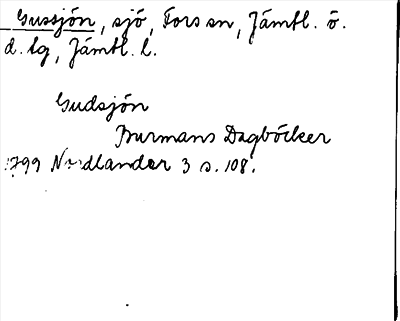 Gussjön, sjö, Fors sn, Jämtl. ö.
d. tg, Jämtl. l.
Gudsjön
Burmans Dagböcker
1799 Nordlander 3 s. 108.